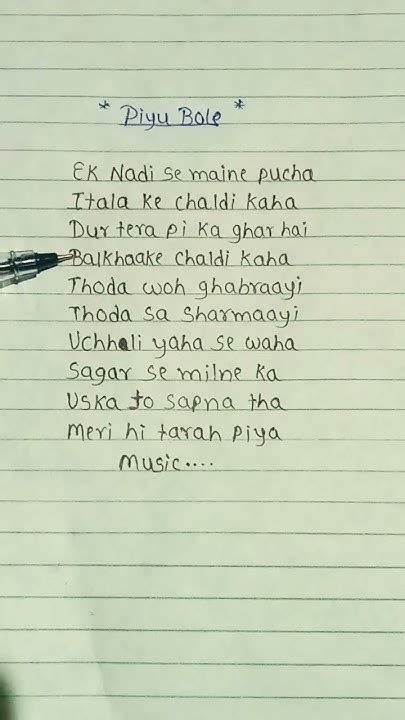 * Piyu Bole *
Ek Nadi se maine pucha
Itala ke chaldi kaha
Dur tera pi ka ghar hai
Balkhaake chaldi kaha
Thoda woh ghabraayi
Thoda sa sharmaayi
Uchhali yaha se waha
Sagar se milne ka
Uska to sapna tha
Meri hi tarah piya
Music....